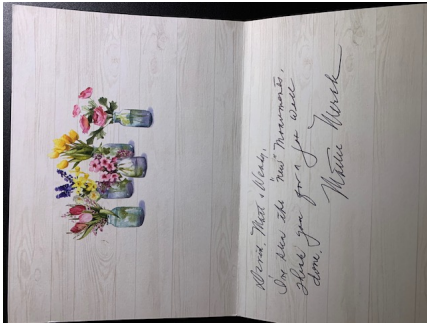 David, Matt & Wendy,
I've seen the "new" Monuments,
Thank you for a job well
done.
Mattie